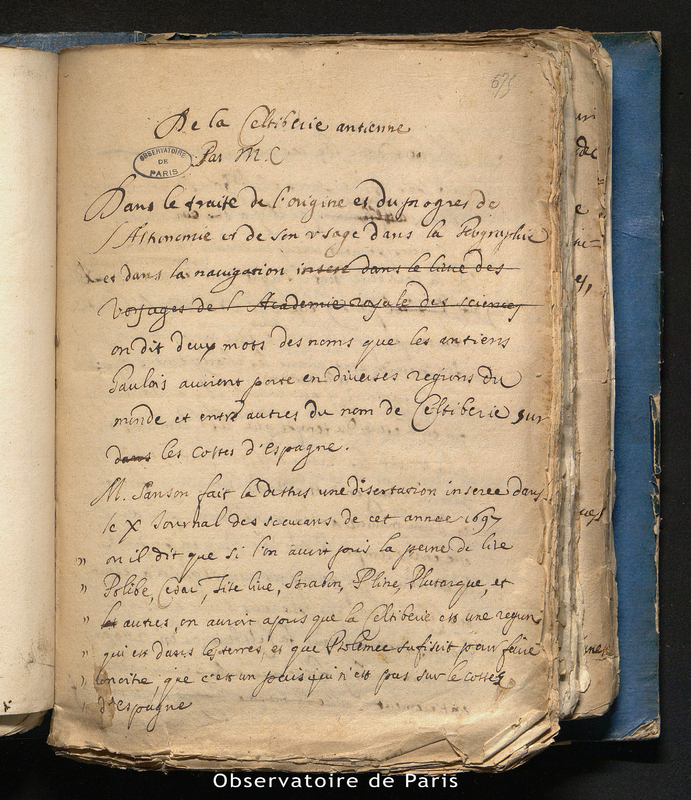 675
De la Celtiberie antienne
OBSERVATOIRE
DE
PARIS
Par M. C
Dans le traité de l'origine et du progres de
l'Astronomie et de son usage dans la Geographie
et dans la navigation inseré dans le livre des
voyages de l'Academie royale des sciences
on dit deux mots des noms que les antiens
Gaulois avoient porté en diverses regions du
monde et entre autres du nom de Celtiberie sur
dans les costes d'Espagne.
M. Sanson fait la dessus une disertation inseree dans
le X Journal des scavans de cet année 1697
" ou il dit que si l'on avoit pris la peine de lire
" Polibe, Cesar, Tite live, Strabon, Pline, Plutarque, et
" les autres, on auroit apris que la Celtiberie est une region
" qui est dans les terres, et que Ptolemée sufisoit pour faire
" conoitre, que c'est un païs qui n'est pas sur le costes
" d'Espagne
Observatoire de Paris